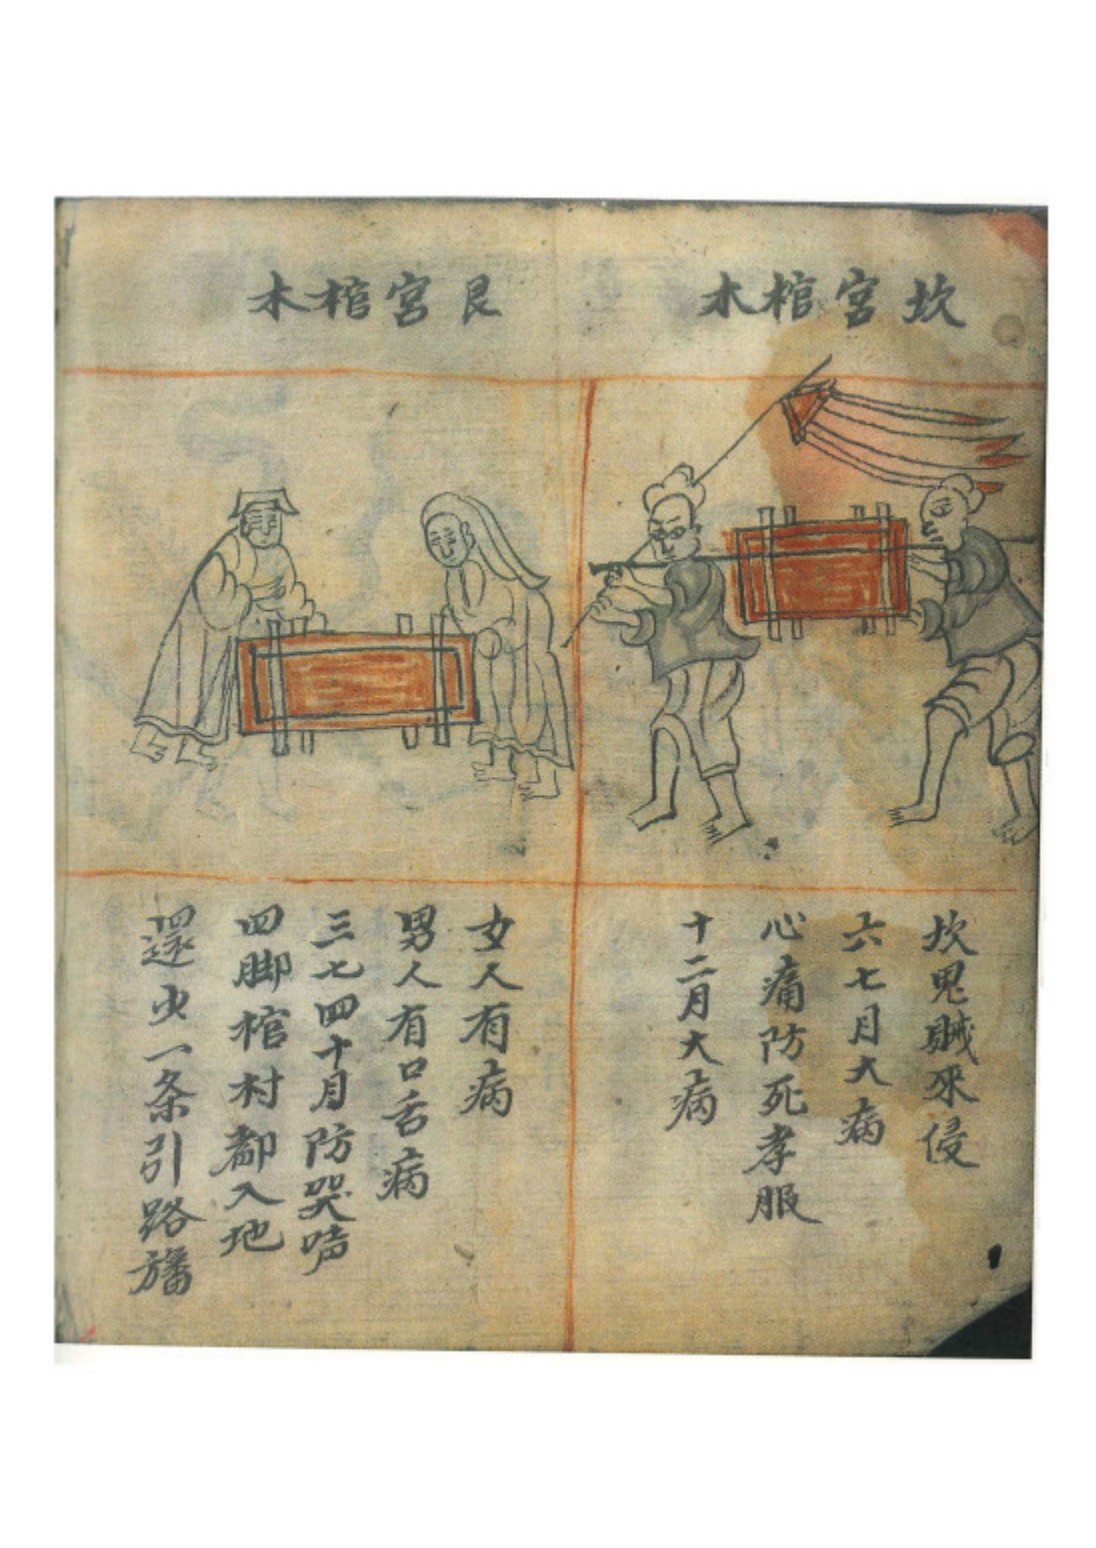 坎宫棺木
坎鬼賊来侵
六七月大病
心痛防死孝服
十二月大病
艮宫棺木
女人有病
男人有口舌病
三七四十月防哭声
四脚棺材都入地
還少一条引路旛